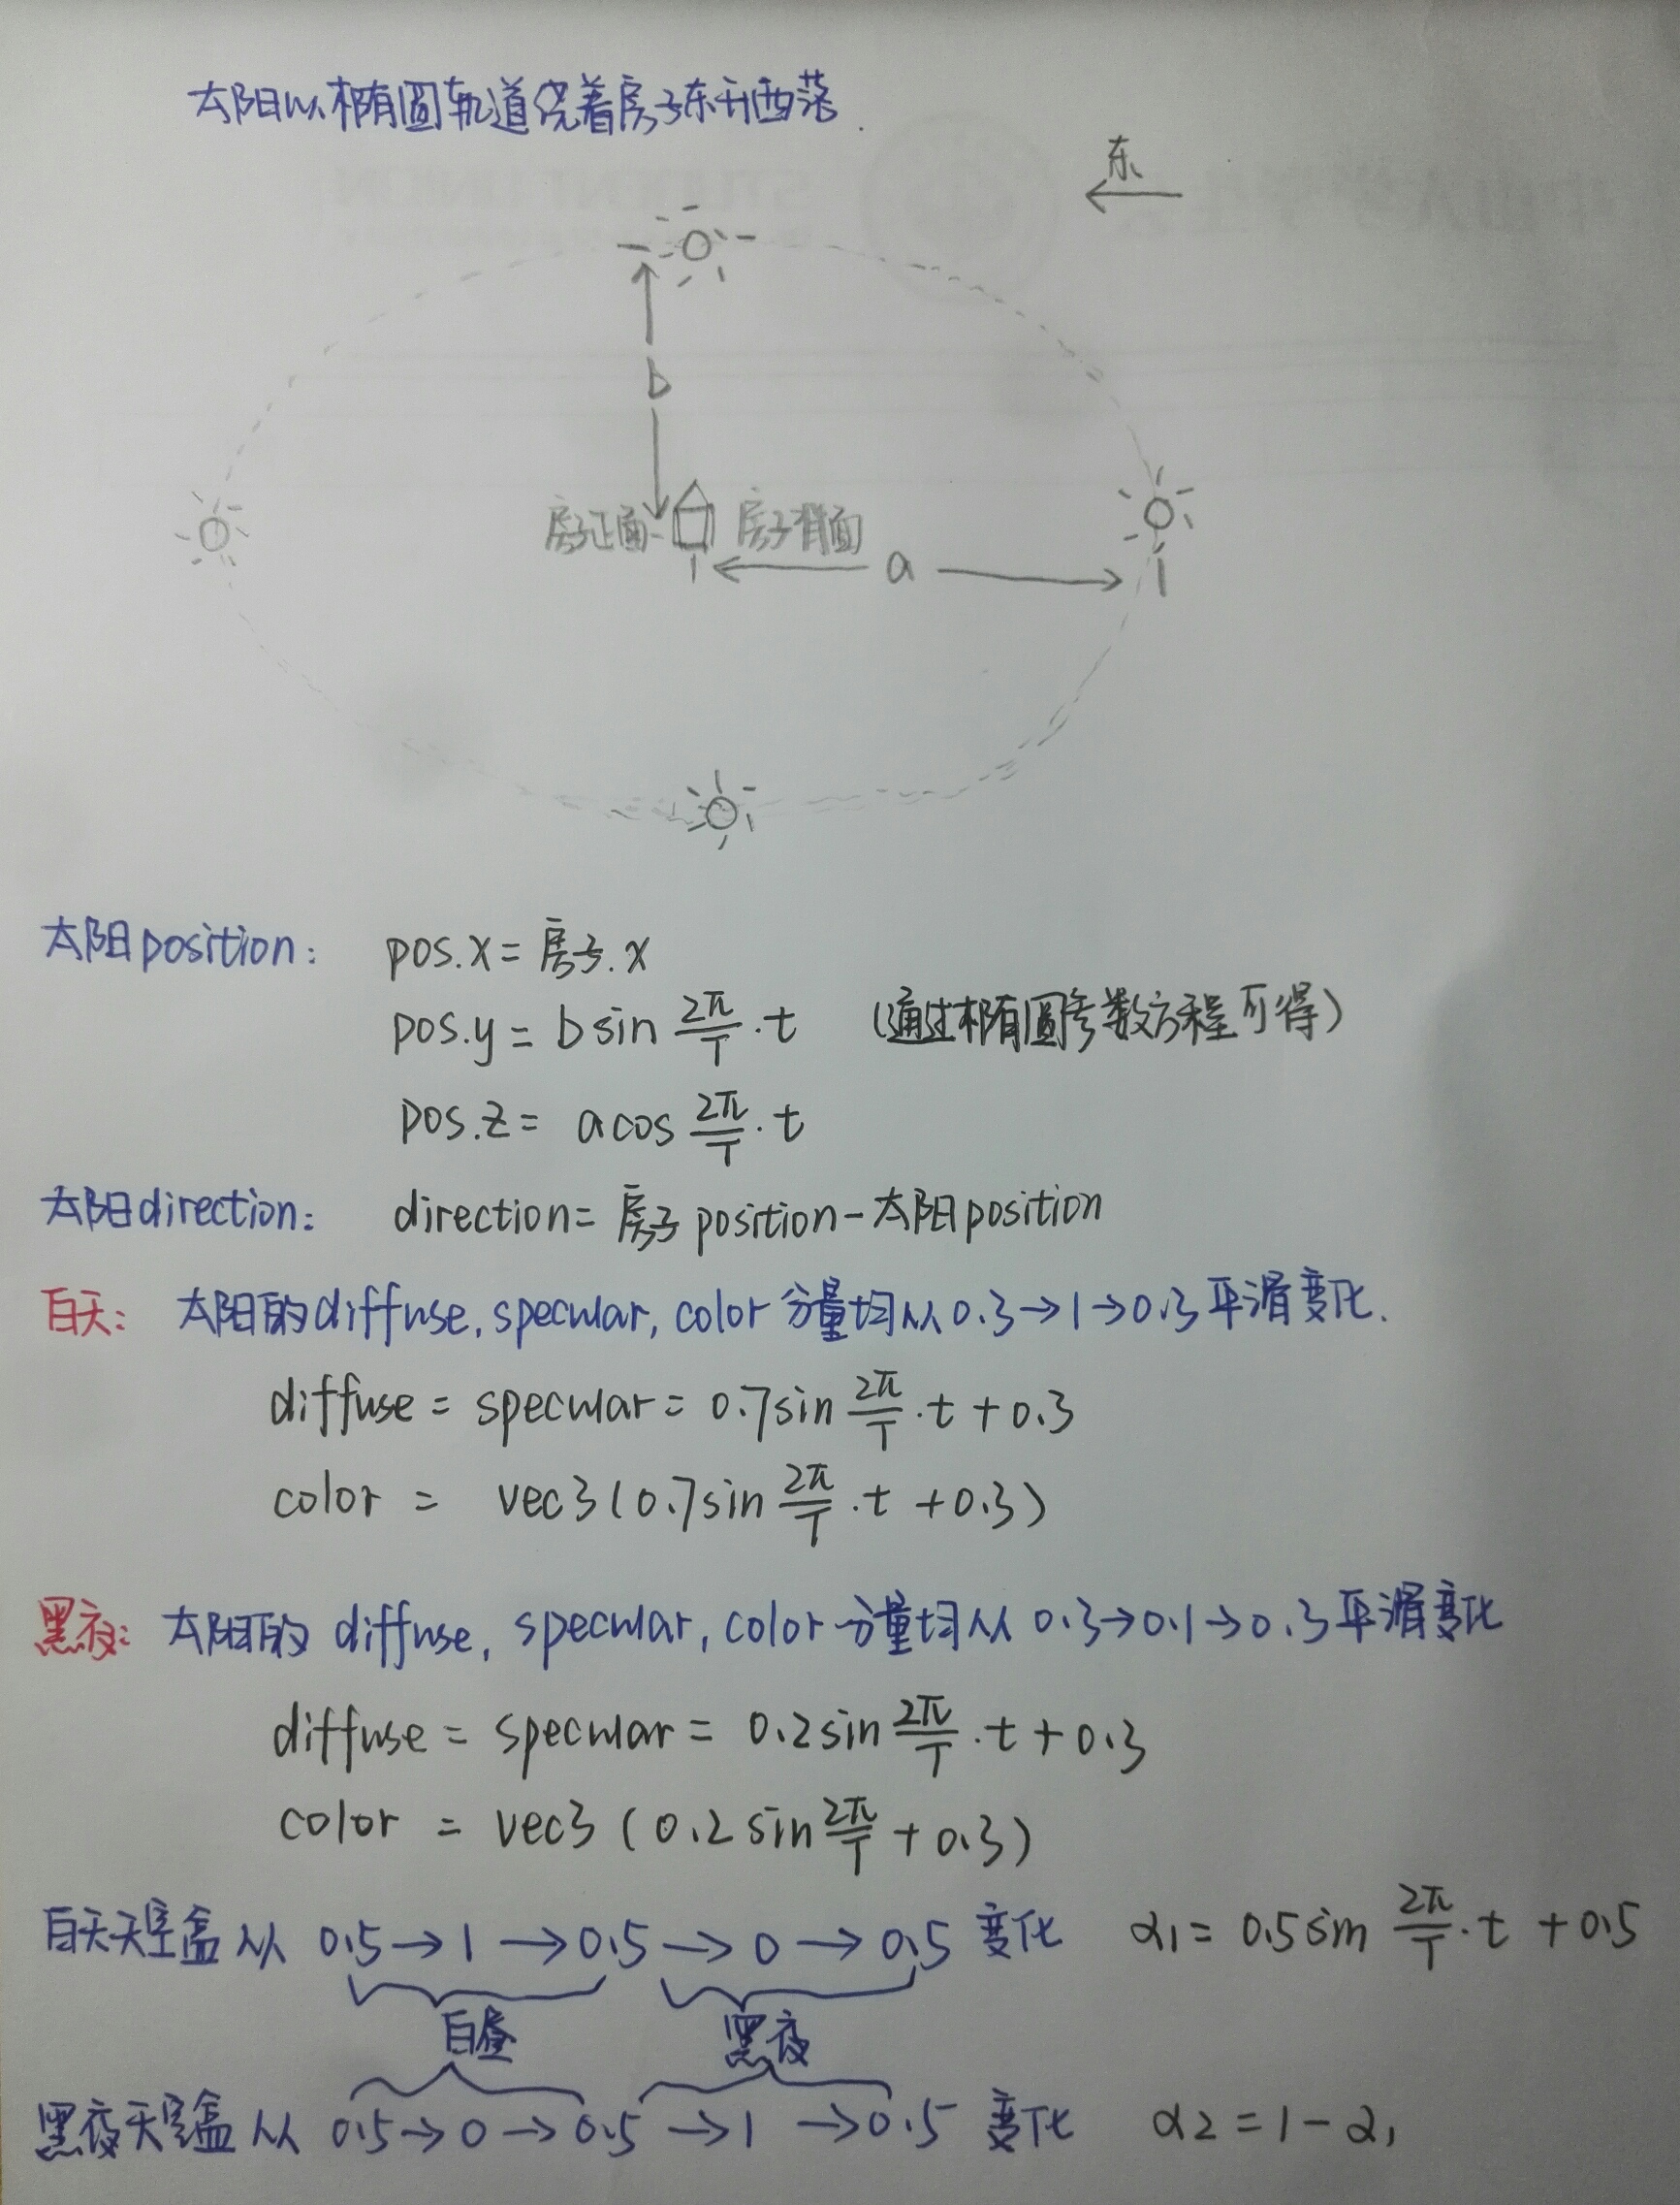 太阳以椭圆轨道绕着房子东升西落.
东
b
房子正面
房子背面
a
太阳position: pos.x = 房子.x
pos.y = b sin 2π/T · t (通过椭圆参数方程可得)
pos.z = a cos 2π/T · t
太阳direction: direction = 房子position - 太阳position
白天: 太阳的diffuse, specular, color 分量均从 0.3→1→0.3 平滑变化.
diffuse = specular = 0.7sin 2π/T · t + 0.3
color = vec3(0.7sin 2π/T · t + 0.3)
黑夜: 太阳的 diffuse, specular, color 分量均从 0.3→0.1→0.3 平滑变化
diffuse = specular = 0.2sin 2π/T · t + 0.3
color = vec3 (0.2 sin 2π/T + 0.3)
白天天空盒从 0.5→1→0.5→0→0.5 变化 α1 = 0.5sin 2π/T · t + 0.5
白昼 黑夜
黑夜天空盒从 0.5→0→0.5→1→0.5 变化 α2 = 1 - α1